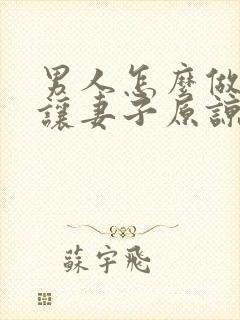 男人怎麼做
讓妻子原諒
蘇宇飛